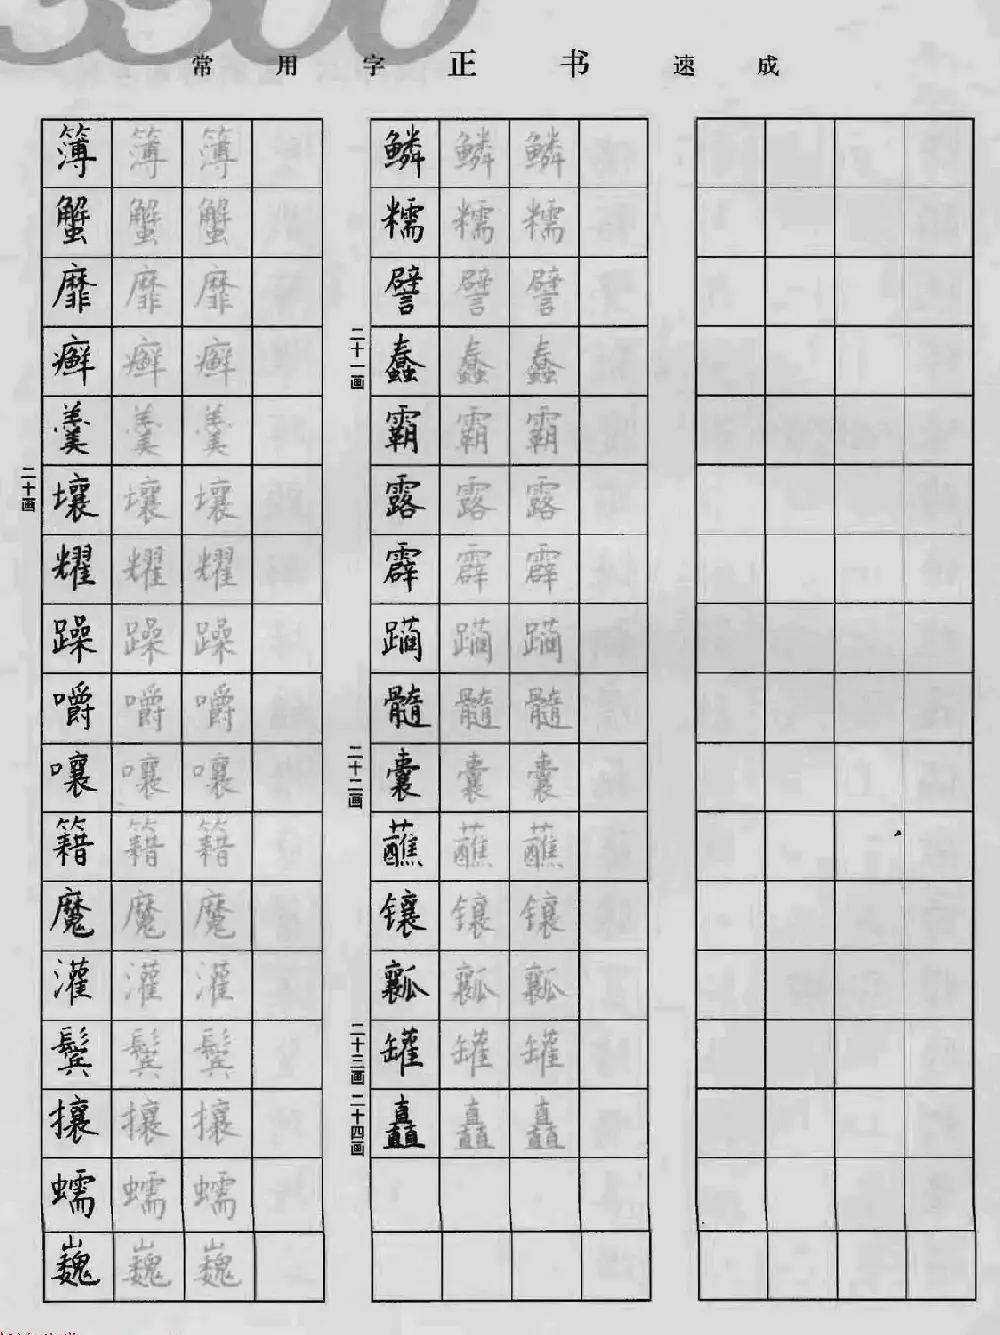 3500
常用字正书速成
簿 簿 簿
蟹 蟹 蟹
靡 靡 靡
癣 癣 癣
羹 羹 羹
二十画
壤 壤 壤
耀 耀 耀
躁 躁 躁
嚼 嚼 嚼
嚷 嚷 嚷
籍 籍 籍
魔 魔 魔
灌 灌 灌
鬓 鬓 鬓
攘 攘 攘
蠕 蠕 蠕
巍 巍 巍
鳞 鳞 鳞
糯 糯 糯
譬 譬 譬
二十一画
蠢 蠢 蠢
霸 霸 霸
露 露 露
霹 霹 霹
躏 躏 躏
髓 髓 髓
二十二画
囊 囊 囊
蘸 蘸 蘸
镶 镶 镶
瓤 瓤 瓤
二十三画
罐 罐 罐
二十四画
矗 矗 矗